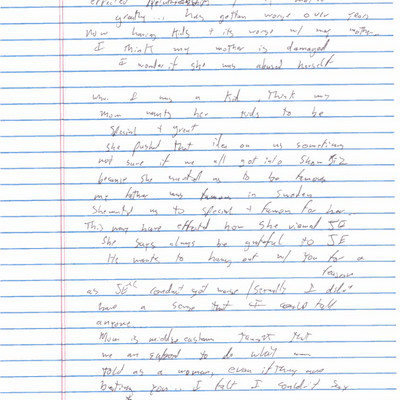 greatly... has gotten worse over years
now having kids + its worse w/ my mother
I think my mother is damaged
I wonder if she was abused herself
when I was a kid think my
mom wants her kids to be
special + great
she pushed that idea on us sometimes
not sure if we all got into
because she wanted us to be famous
my father was famous in Sweden
She wanted us to special + famous for her.
This may have effected how she viewed JE
She says always be grateful to JE
He wants to hang out w/ you for a
reason
as JE conduct got more / sexually I didn't
have a sense that I could tell
anyone
Mom is middle eastern taught that
we are supposed to do what
told as a woman, even if they were
beating you.. I felt I couldn't say